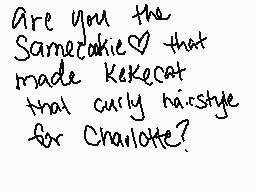 are you the
samecookie♡ that
made kekecat
that curly hairstyle
for Charlotte?